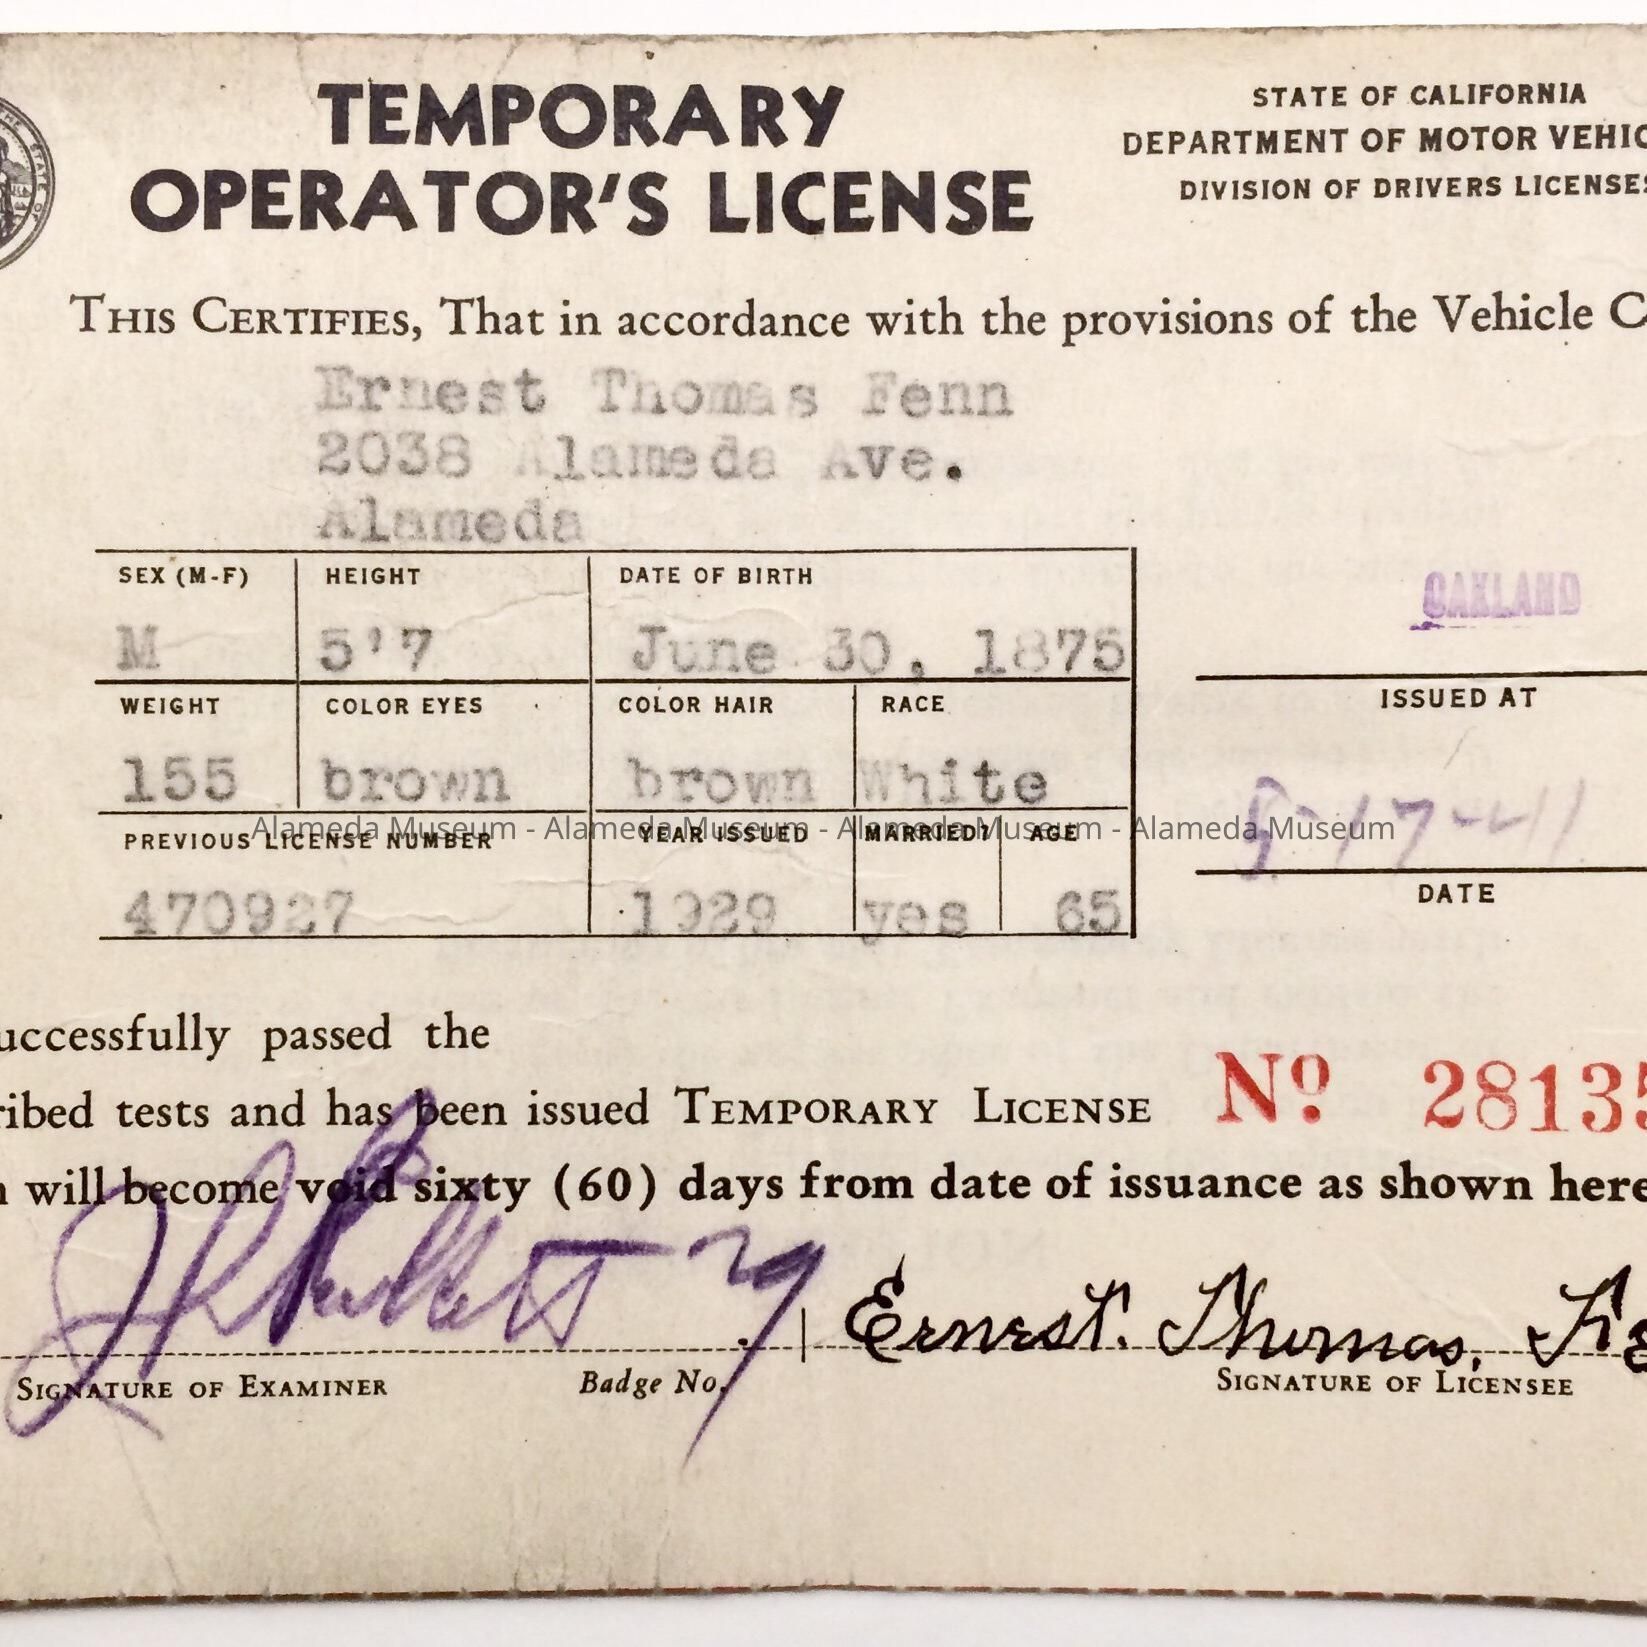 TEMPORARY
OPERATOR'S LICENSE
STATE OF CALIFORNIA
DEPARTMENT OF MOTOR VEHIC
DIVISION OF DRIVERS LICENSES
THIS CERTIFIES, That in accordance with the provisions of the Vehicle C
Ernest Thomas Fenn
2038 Alameda Ave.
Alameda
SEX (M-F) HEIGHT DATE OF BIRTH
M 5'7 June 30, 1875
OAKLAND
ISSUED AT
WEIGHT COLOR EYES COLOR HAIR RACE
155 brown brown White
Alameda Museum - Alameda Museum - Alameda Museum - Alameda Museum
PREVIOUS LICENSE NUMBER YEAR ISSUED MARRIED? AGE
470927 1929 yes 65
5-17-41
DATE
uccessfully passed the
ribed tests and has been issued TEMPORARY LICENSE Nº 28135
n will become void sixty (60) days from date of issuance as shown here
Ernest. Thomas, Fe
SIGNATURE OF EXAMINER Badge No. SIGNATURE OF LICENSEE